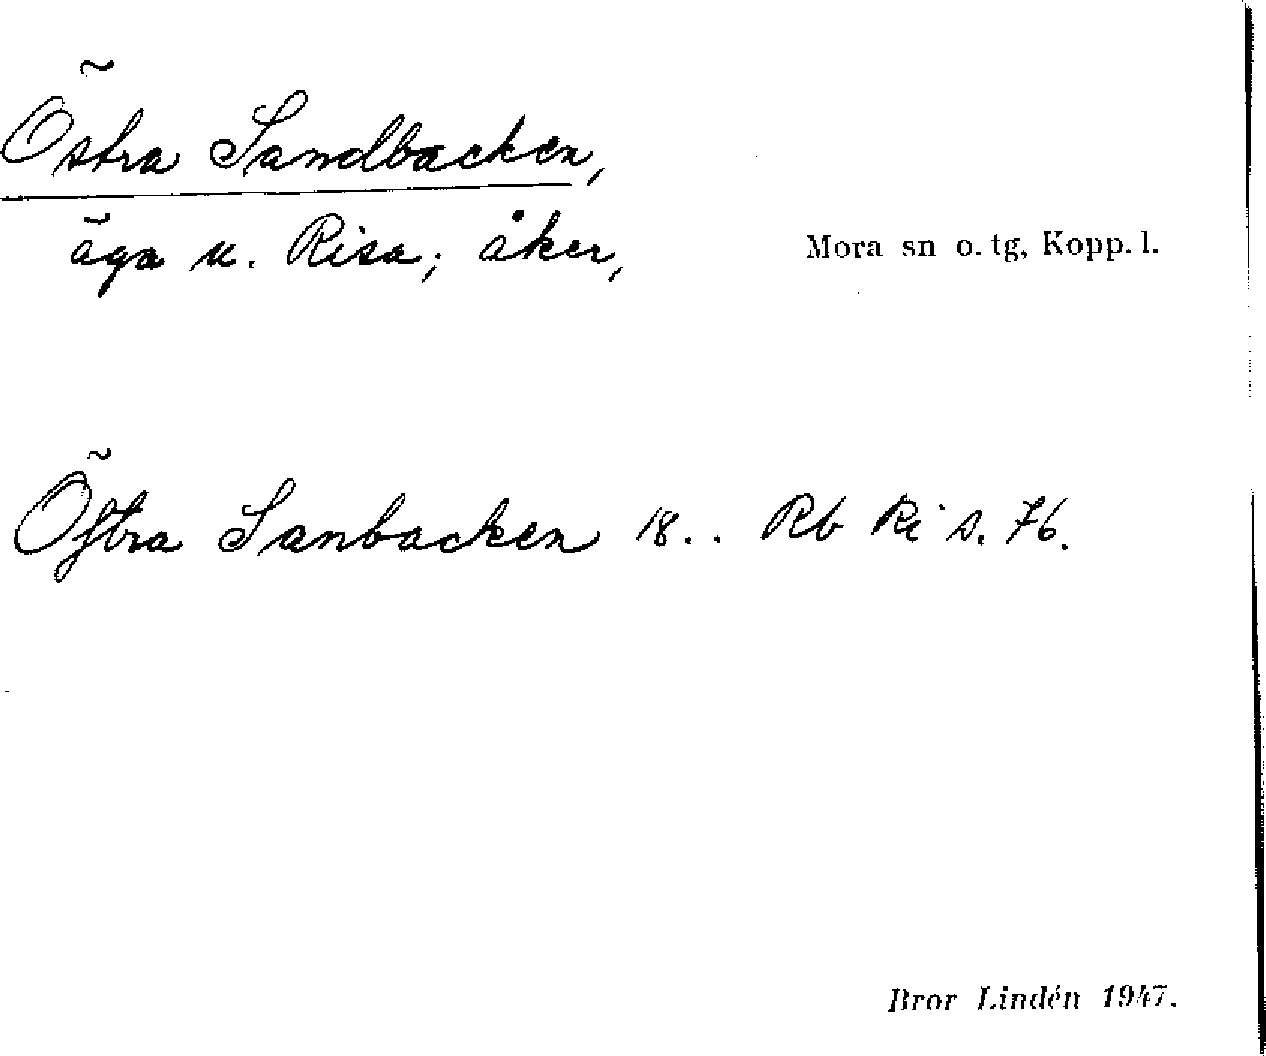 Östra Sandbacken,
äga u. Risa; åker,
Mora sn o. tg, Kopp. l.
Öſtra Sanbacken 18.. Rb Ri s. 76.
Bror Lindén 1947.